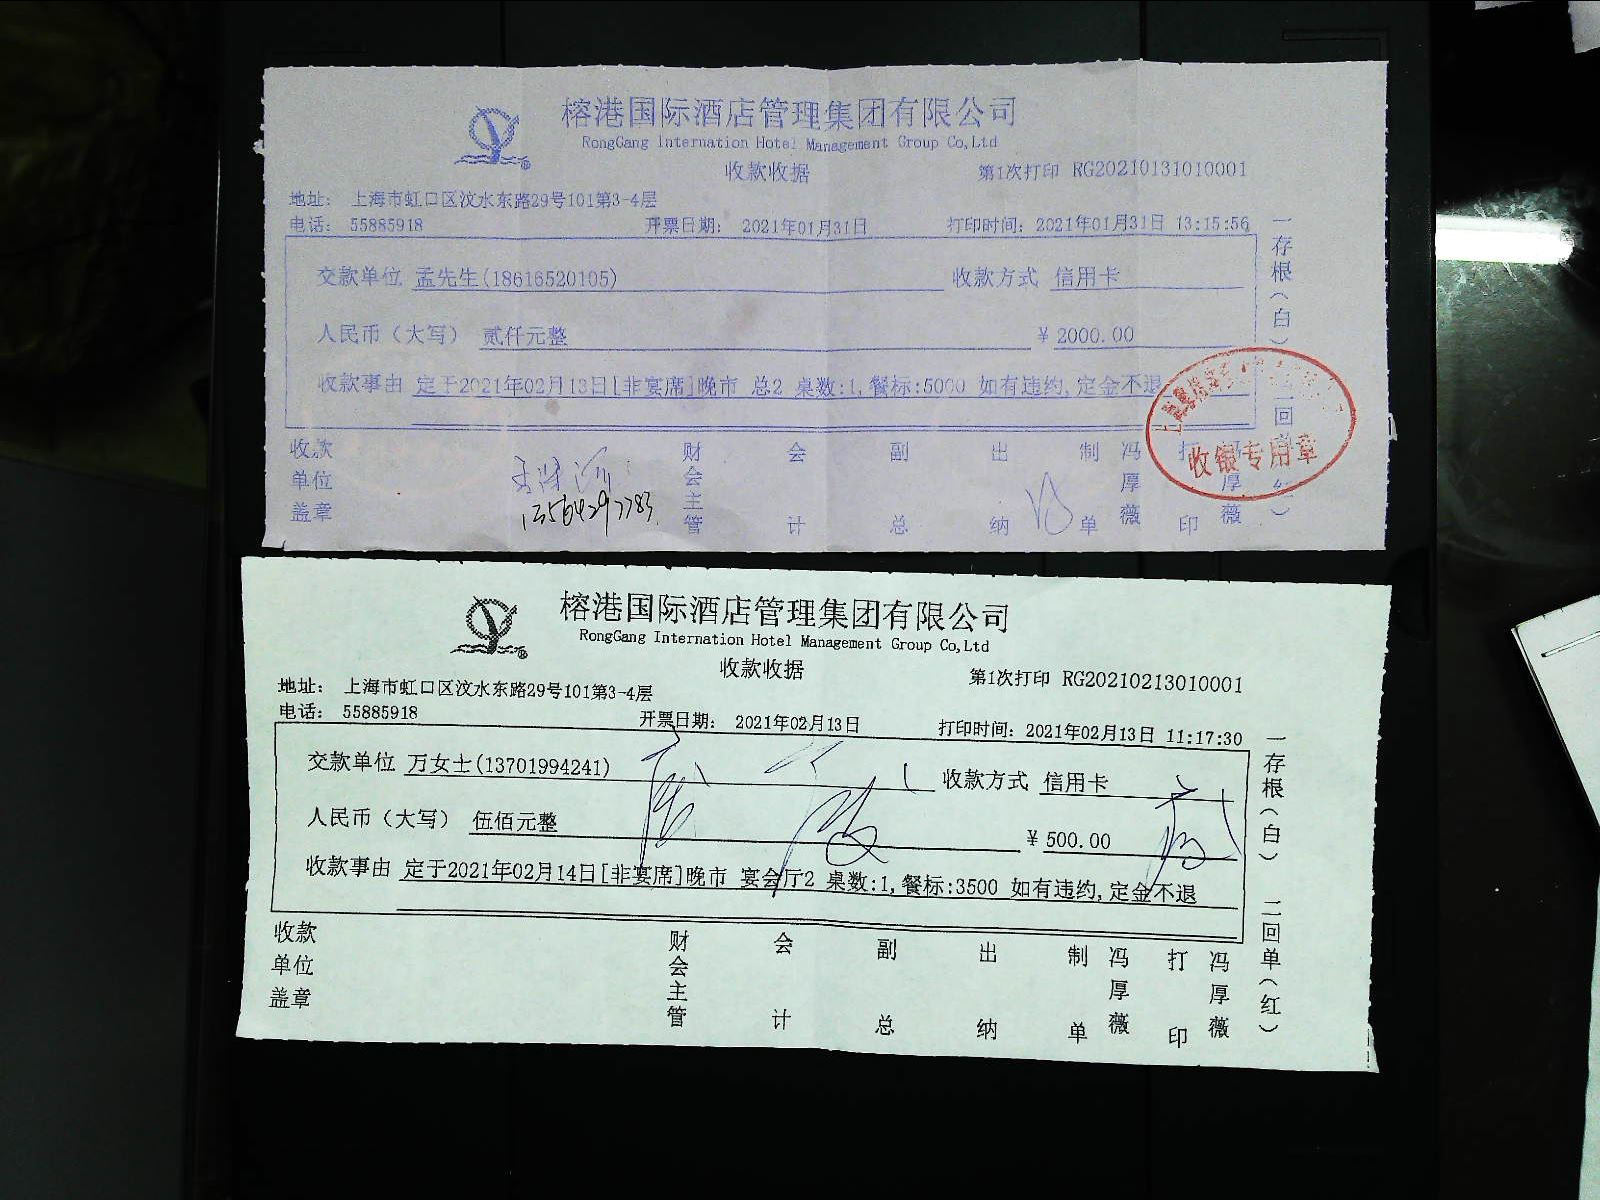 榕港国际酒店管理集团有限公司
RongGang Internation Hotel Management Group Co,Ltd
收款收据
第1次打印 RG20210131010001
地址： 上海市虹口区汶水东路29号101第3-4层
电话： 55885918 开票日期： 2021年01月31日 打印时间：2021年01月31日 13:15:56
交款单位 孟先生(18616520105) 收款方式 信用卡
人民币（大写） 贰仟元整 ￥2000.00
收款事由 定于2021年02月13日[非宴席]晚市 总2 桌数:1,餐标:5000 如有违约,定金不退
一存根（白） 二回单（红）
收银专用章
收款单位盖章 财会主管 会计 副总 出纳 制单 冯厚薇 打印 冯厚薇
13564297783
榕港国际酒店管理集团有限公司
RongGang Internation Hotel Management Group Co,Ltd
收款收据
第1次打印 RG20210213010001
地址： 上海市虹口区汶水东路29号101第3-4层
电话： 55885918 开票日期： 2021年02月13日 打印时间：2021年02月13日 11:17:30
交款单位 万女士(13701994241) 收款方式 信用卡
人民币（大写） 伍佰元整 ￥500.00
收款事由 定于2021年02月14日[非宴席]晚市 宴会厅2 桌数:1,餐标:3500 如有违约,定金不退
一存根（白） 二回单（红）
收款单位盖章 财会主管 会计 副总 出纳 制单 冯厚薇 打印 冯厚薇